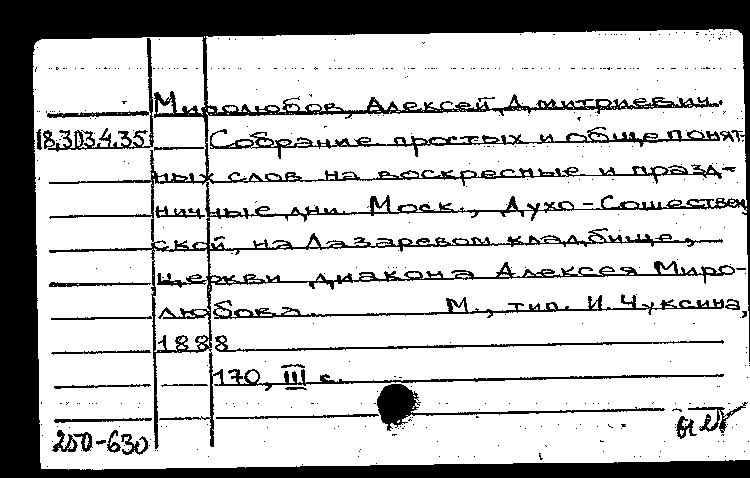 Миролюбов, Алексей Дмитриевич.
18.303.4.35 Собрание простых и общепонят-
ных слов на воскресные и празд-
ничные дни. Моск., Духо-Сошествен
ской, на Лазаревом кладбище,
церкви диакона Алексея Миро-
любова. М., тип. И. Чуксина,
1888
170, III с.
250-630